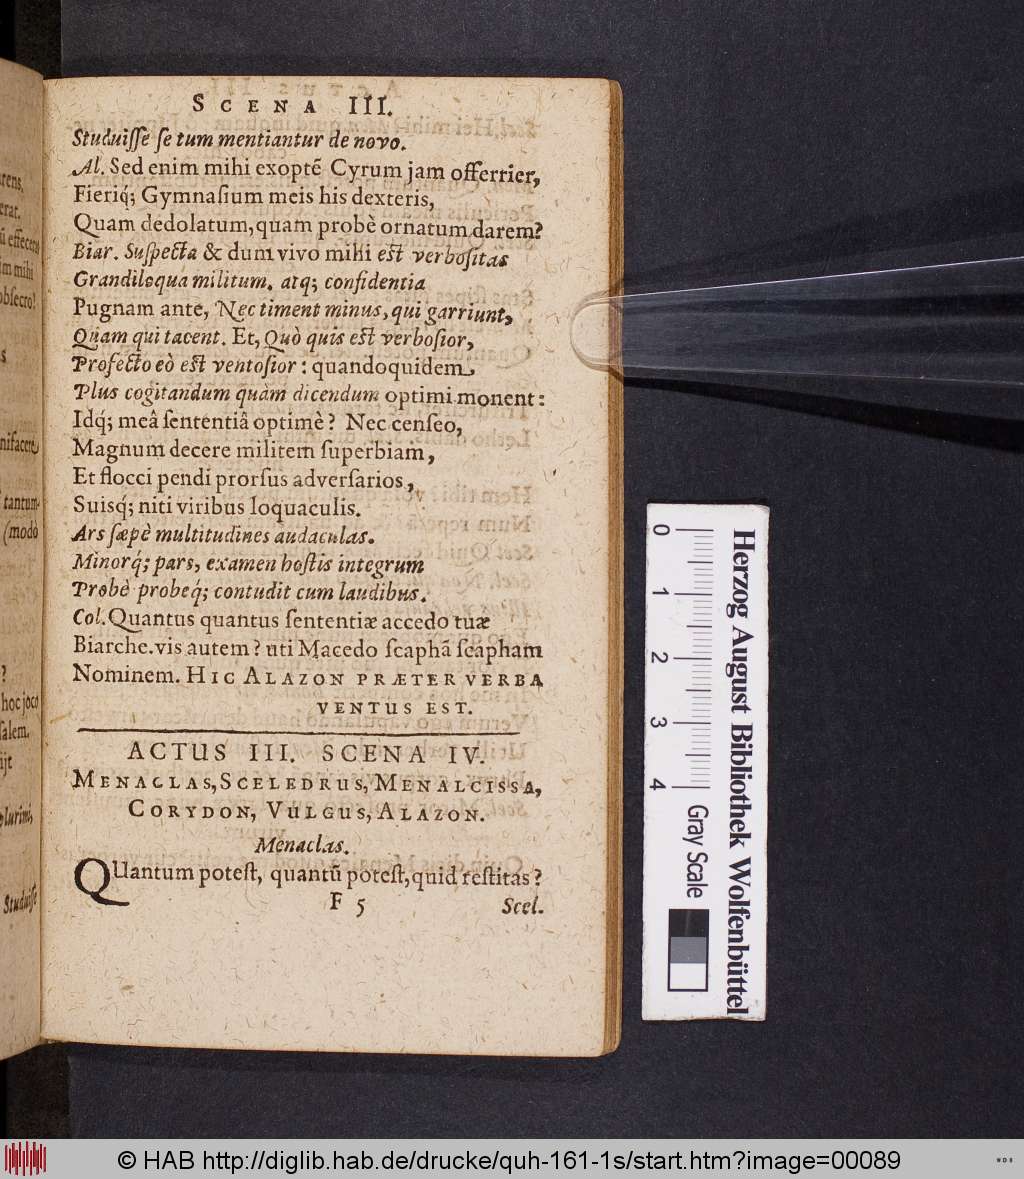 rens,
erat.
ũ effecens
im mihi
obſecro!
s
nifacere
tantum-
(modò
?
hoc joco
ſalem.
ijt
plurimi,
Studuiſſe
SCENA III.
Studuiſſe ſe tum mentiantur de novo.
Al. Sed enim mihi exoptẽ Cyrum jam offerrier,
Fieriq́; Gymnaſium meis his dexteris,
Quam dedolatum, quam probè ornatum darem?
Biar. Suſpecta & dum vivo mihi eſt verboſitas
Grandiloqua militum. atq; confidentia
Pugnam ante, Nec timent minus, qui garriunt,
Quam qui tacent. Et, Quò quis eſt verboſior,
Profecto eò eſt ventoſior: quandoquidem
Plus cogitandum quàm dicendum optimi monent:
Idq́; meâ ſententiâ optimè? Nec cenſeo,
Magnum decere militem ſuperbiam,
Et flocci pendi prorſus adverſarios,
Suisq́; niti viribus loquaculis.
Ars ſæpè multitudines audaculas.
Minorq́; pars, examen hoſtis integrum
Probè probeq́; contudit cum laudibus.
Col. Quantus quantus ſententiæ accedo tuæ
Biarche. vis autem? uti Macedo ſcaphã ſcapham
Nominem. HIC ALAZON PRÆTER VERBA
VENTUS EST.
ACTUS III. SCENA IV.
MENACLAS, SCELEDRUS, MENALCISSA,
CORYDON, VULGUS, ALAZON.
Menaclas.
QUantum poteſt, quantũ poteſt, quid reſtitas?
F 5 Scel.
0 1 2 3 4 Gray Scale
Herzog August Bibliothek Wolfenbüttel
© HAB http://diglib.hab.de/drucke/quh-161-1s/start.htm?image=00089